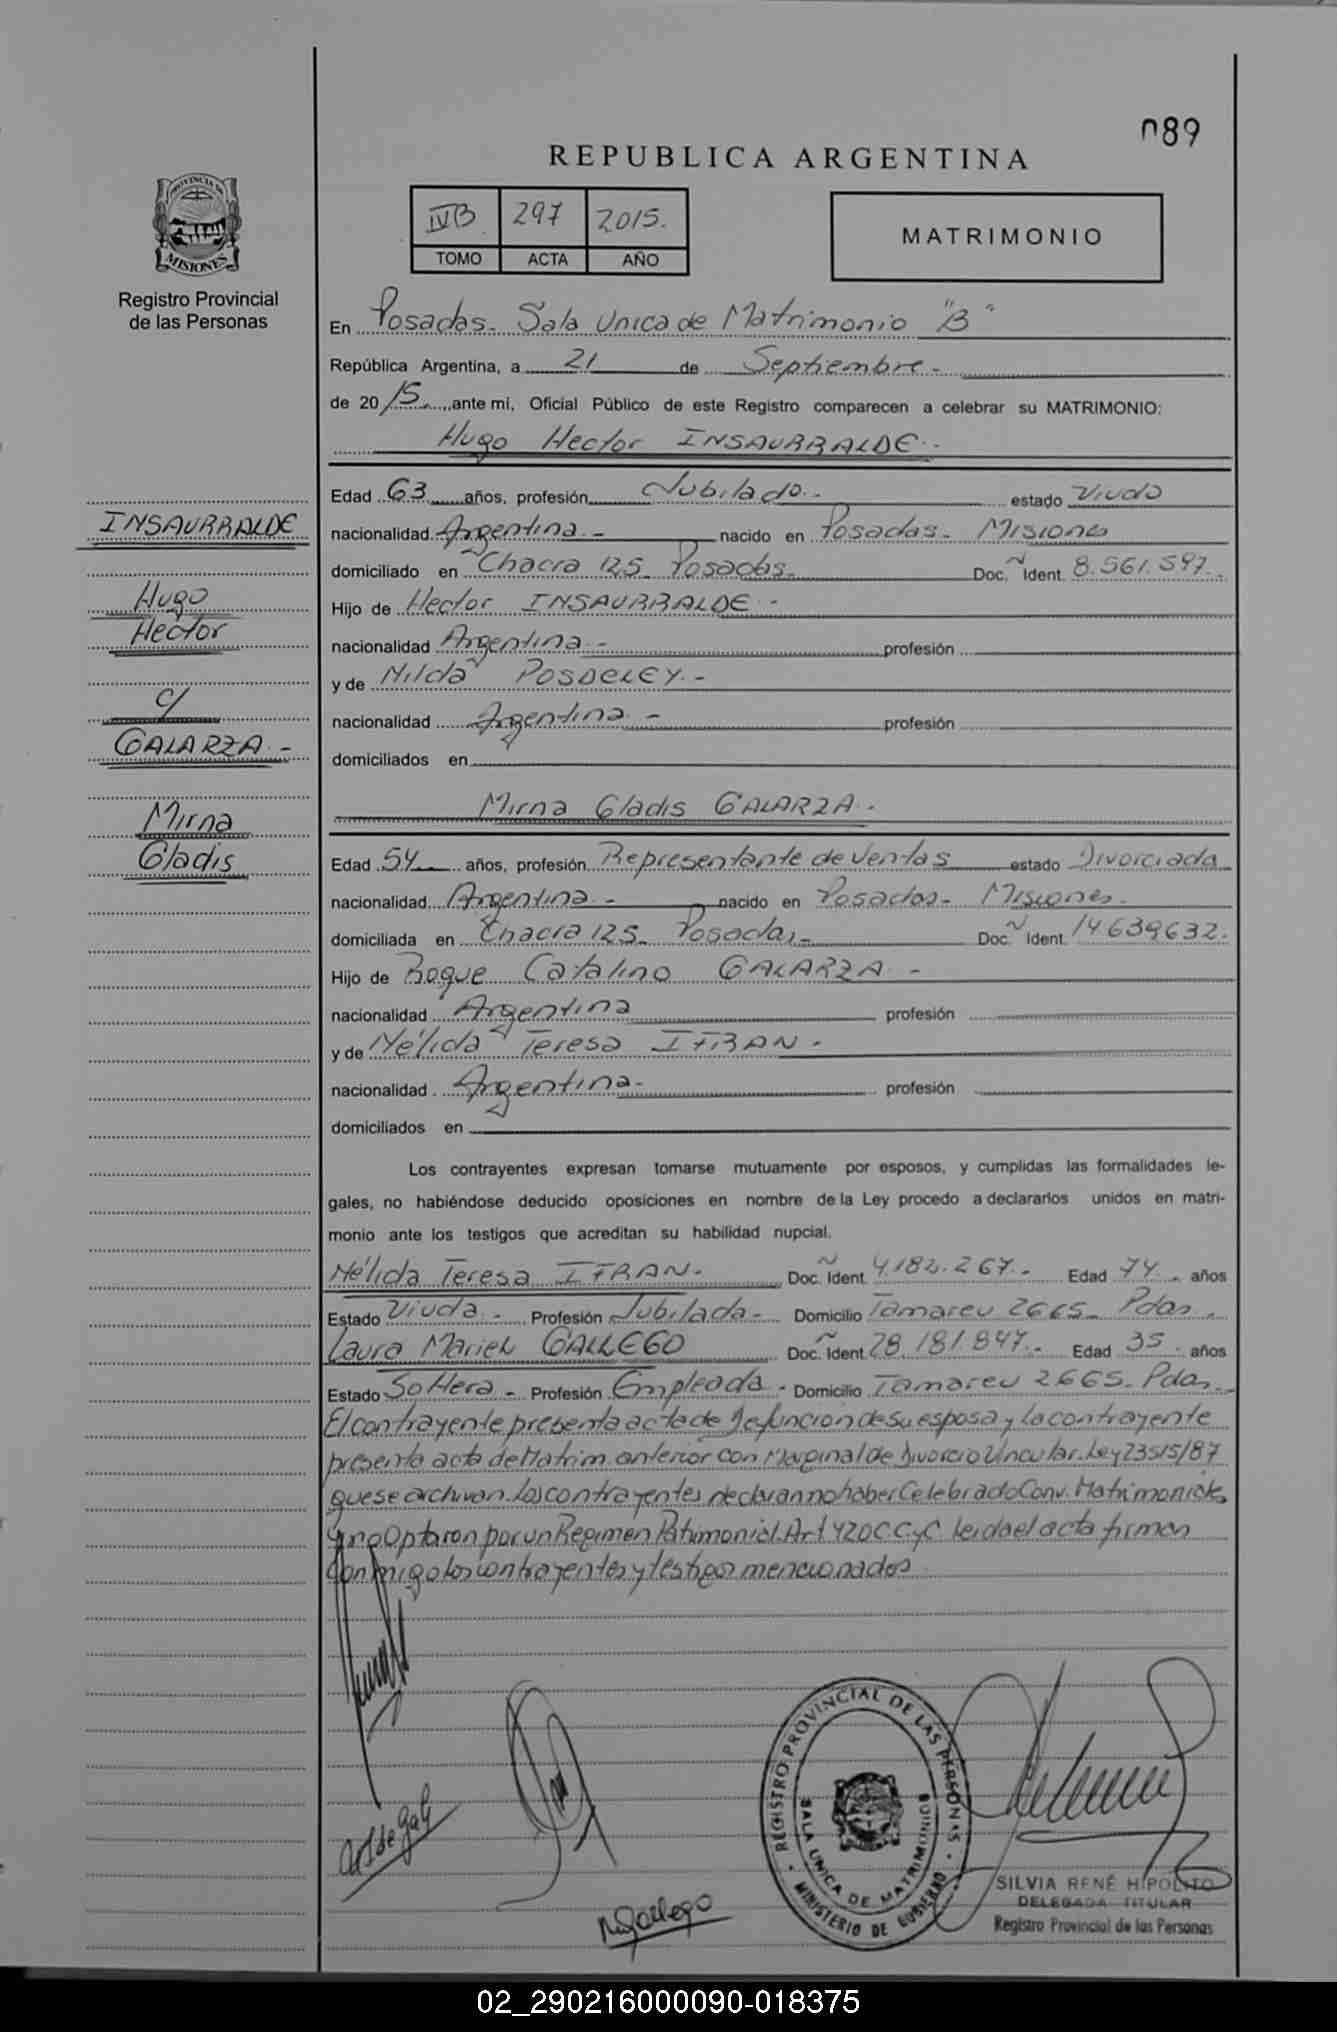 089
REPUBLICA ARGENTINA
IVB 297 2015.
TOMO ACTA AÑO
MATRIMONIO
PROVINCIA DE
MISIONES
Registro Provincial
de las Personas
En Posadas. Sala Unica de Matrimonio "B"
República Argentina, a 21 de Septiembre.-
de 2015, ante mi, Oficial Público de este Registro comparecen a celebrar su MATRIMONIO:
Hugo Hector INSAURRALDE.-
INSAURRALDE
Hugo
Hector
c/
GALARZA.-
Mirna
Gladis
Edad 63 años, profesión Jubilado.- estado Viudo
nacionalidad Argentina.- nacido en Posadas. Misiones
domiciliado en Chacra 125. Posadas. Doc. Ident. 8.561.597.
Hijo de Hector INSAURRALDE.-
nacionalidad Argentina.- profesión
y de Nilda POSDELEY.-
nacionalidad Argentina.- profesión
domiciliados en
Mirna Gladis GALARZA.-
Edad 54 años, profesión Representante de Ventas estado Divorciada
nacionalidad Argentina.- nacido en Posadas. Misiones.
domiciliada en Chacra 125. Posadas.- Doc. Ident. 14639632.
Hijo de Roque Catalino GALARZA.-
nacionalidad Argentina profesión
y de Nélida Teresa IFRAN.
nacionalidad Argentina.- profesión
domiciliados en
Los contrayentes expresan tomarse mutuamente por esposos, y cumplidas las formalidades le-
gales, no habiéndose deducido oposiciones en nombre de la Ley procedo a declararlos unidos en matri-
monio ante los testigos que acreditan su habilidad nupcial.
Nélida Teresa IFRAN. Doc. Ident. 4.182.267.- Edad 74 años
Estado Viuda.- Profesión Jubilada.- Domicilio Tamareu 2665. Pdas.
Laura Mariel GALLEGO Doc. Ident. 28.181.847.- Edad 35 años
Estado Soltera.- Profesión Empleada.- Domicilio Tamareu 2665. Pdas.
El contrayente presenta acta de defuncion de su esposa y la contrayente
presenta acta de Matrim. anterior con Marginal de Divorcio Vincular. Ley 23515/87
que se archivan. Los contrayentes declaran no haber Celebrado Conv. Matrimoniales
y no Optaron por un Regimen Patrimonial. Art 420 C.C.yC. Leida el acta firman
conmigo los contrayentes y testigos mencionados.
REGISTRO PROVINCIAL DE LAS PERSONAS
SALA UNICA DE MATRIMONIOS
MINISTERIO DE GOBIERNO
SILVIA RENÉ HIPOLITO
DELEGADA TITULAR
Registro Provincial de las Personas
02_290216000090-018375